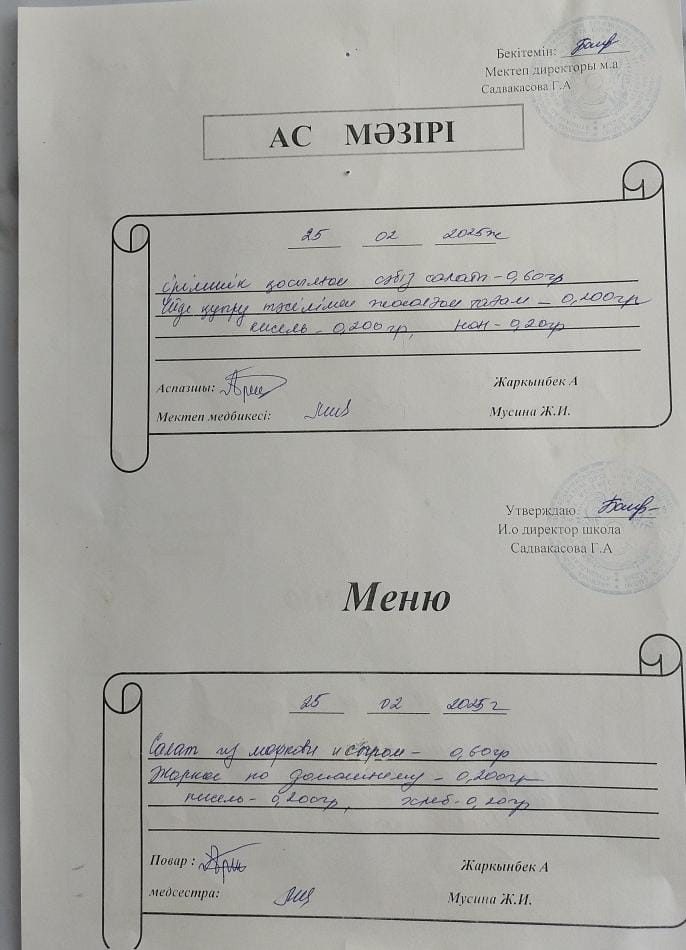 Бекітемін:
Мектеп директоры м.а
Садвакасова Г.А
АС МӘЗІРІ
25 02 2025ж
ірімшік қосылған сәбіз салаты - 0,60гр
Үйде қуыру тәсілімен жасалған тағам - 0,200гр
кисель - 0,200гр, нан - 0,20гр
Аспазшы: Жаркынбек А
Мектеп медбикесі: Мусина Ж.И.
Утверждаю
И.о директор школа
Садвакасова Г.А
Меню
25 02 2025 г
Салат из моркови и сыром - 0,60гр
Жаркое по домашнему - 0,200гр
кисель - 0,200гр, хлеб - 0,20гр
Повар : Жаркынбек А
медсестра: Мусина Ж.И.